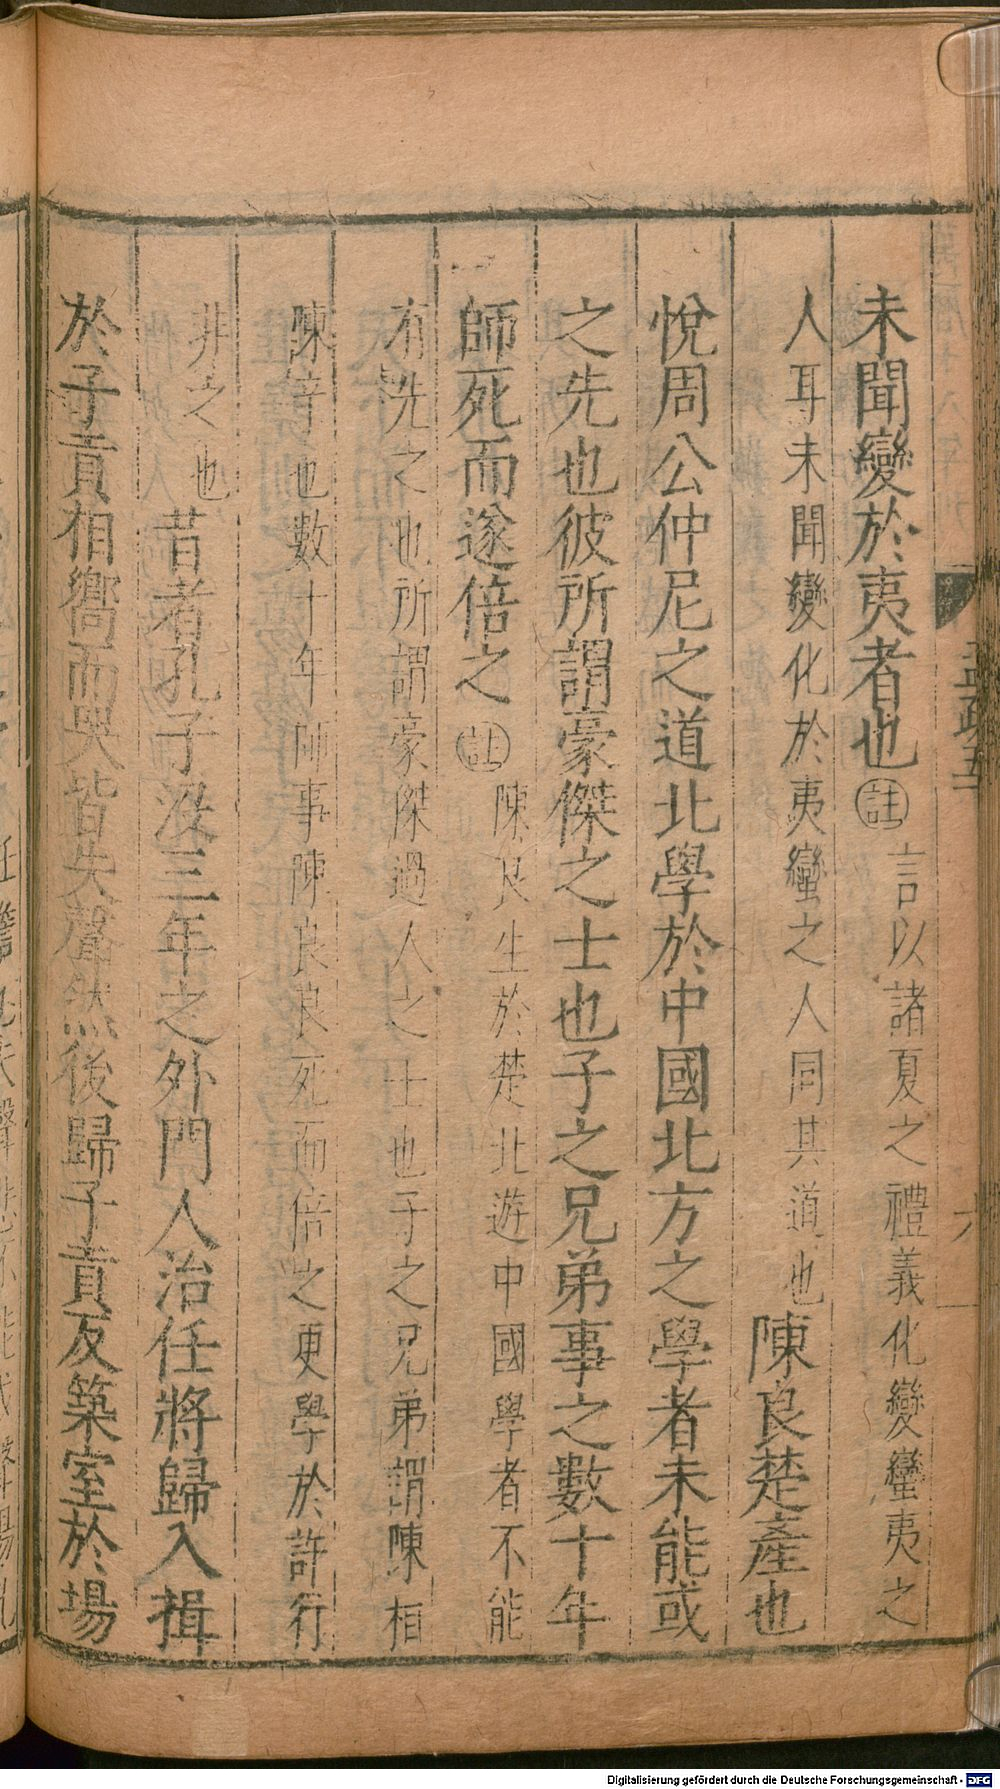 未聞變於夷者也註言以諸夏之禮義化變蠻夷之
人耳未聞變化於夷蠻之人同其道也陳良楚產也
悅周公仲尼之道北學於中國北方之學者未能或
之先也彼所謂豪傑之士也子之兄弟事之數十年
師死而遂倍之註陳良生於楚北遊中國學者不能
有先之也所謂豪傑過人之士也子之兄弟謂陳相
陳辛也數十年師事陳良良死而倍之更學於許行
非之也昔者孔子沒三年之外門人治任將歸入揖
於子貢相嚮而哭皆失聲然後歸子貢反築室於場
孟疏五
六
Digitalisierung gefördert durch die Deutsche Forschungsgemeinschaft - DFG